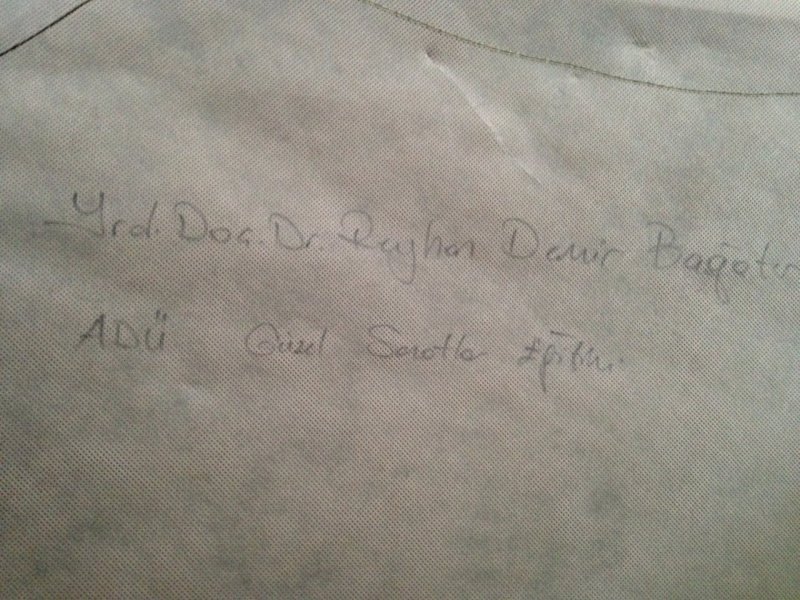 Yrd. Doç. Dr. Reyhan Demir Bağatır
ADÜ Güzel Sanatlar Eğitimi